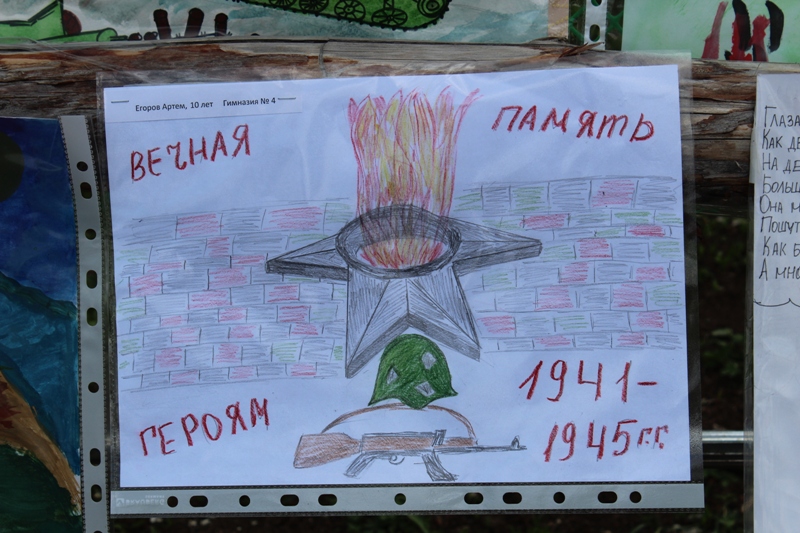 Егоров Артем, 10 лет Гимназия № 4
ВЕЧНАЯ
ПАМЯТЬ
ГЕРОЯМ
1941-
1945г.г.
ГЛАЗА
КАК
НА
БОЛЬШ
ОНА
ПОШУТ
КАК Б
А МНО